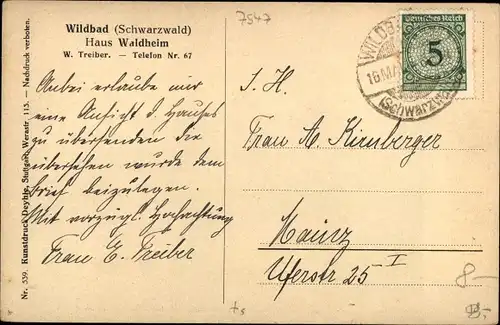 7547
Wildbad (Schwarzwald)
Haus Waldheim
W. Treiber. — Telefon Nr. 67
Anbei erlaube mir
eine Ansicht d. Hauses
zu übersenden die
übersehen wurde dem
Brief beizulegen.
Mit vorzügl. Hochachtung
Frau E. Treiber
Nr. 539. Kunstdruck Deyhle, Stuttgart, Werastr. 113. — Nachdruck verboten.
WILDB
16 MA
(Schwarzw
Deutsches Reich
5
S. H.
Frau A. Kirnberger
Mainz
Uferstr 25 I
8-